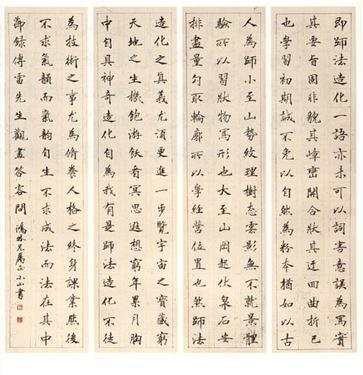 即師造化一語未可以詞害意誤為寫實
其要旨固非貌其嶂巒開合狀其迂回曲折已
也學習初期誠不免以自然為粉本猶如以古
人為師小至山勢紋理樹態雲影無不就景體
驗所以習狀物寫形也大至山岡起伏泉石安
排盡量勾取輪廓所以學經營位置也然師法
造化之真義尤須更進一步覽宇宙之寶藏窮
天地之生機飽游飫看冥思遐想窮年累月胸
中自具神奇造化自為我有是師法造化不徒
為技術之事尤為脩養人格之終身課業然後
不求氣韻而氣韻自生不求成法而法在其中
節錄傅雷先生觀畫答客問 兄屬正 小山書